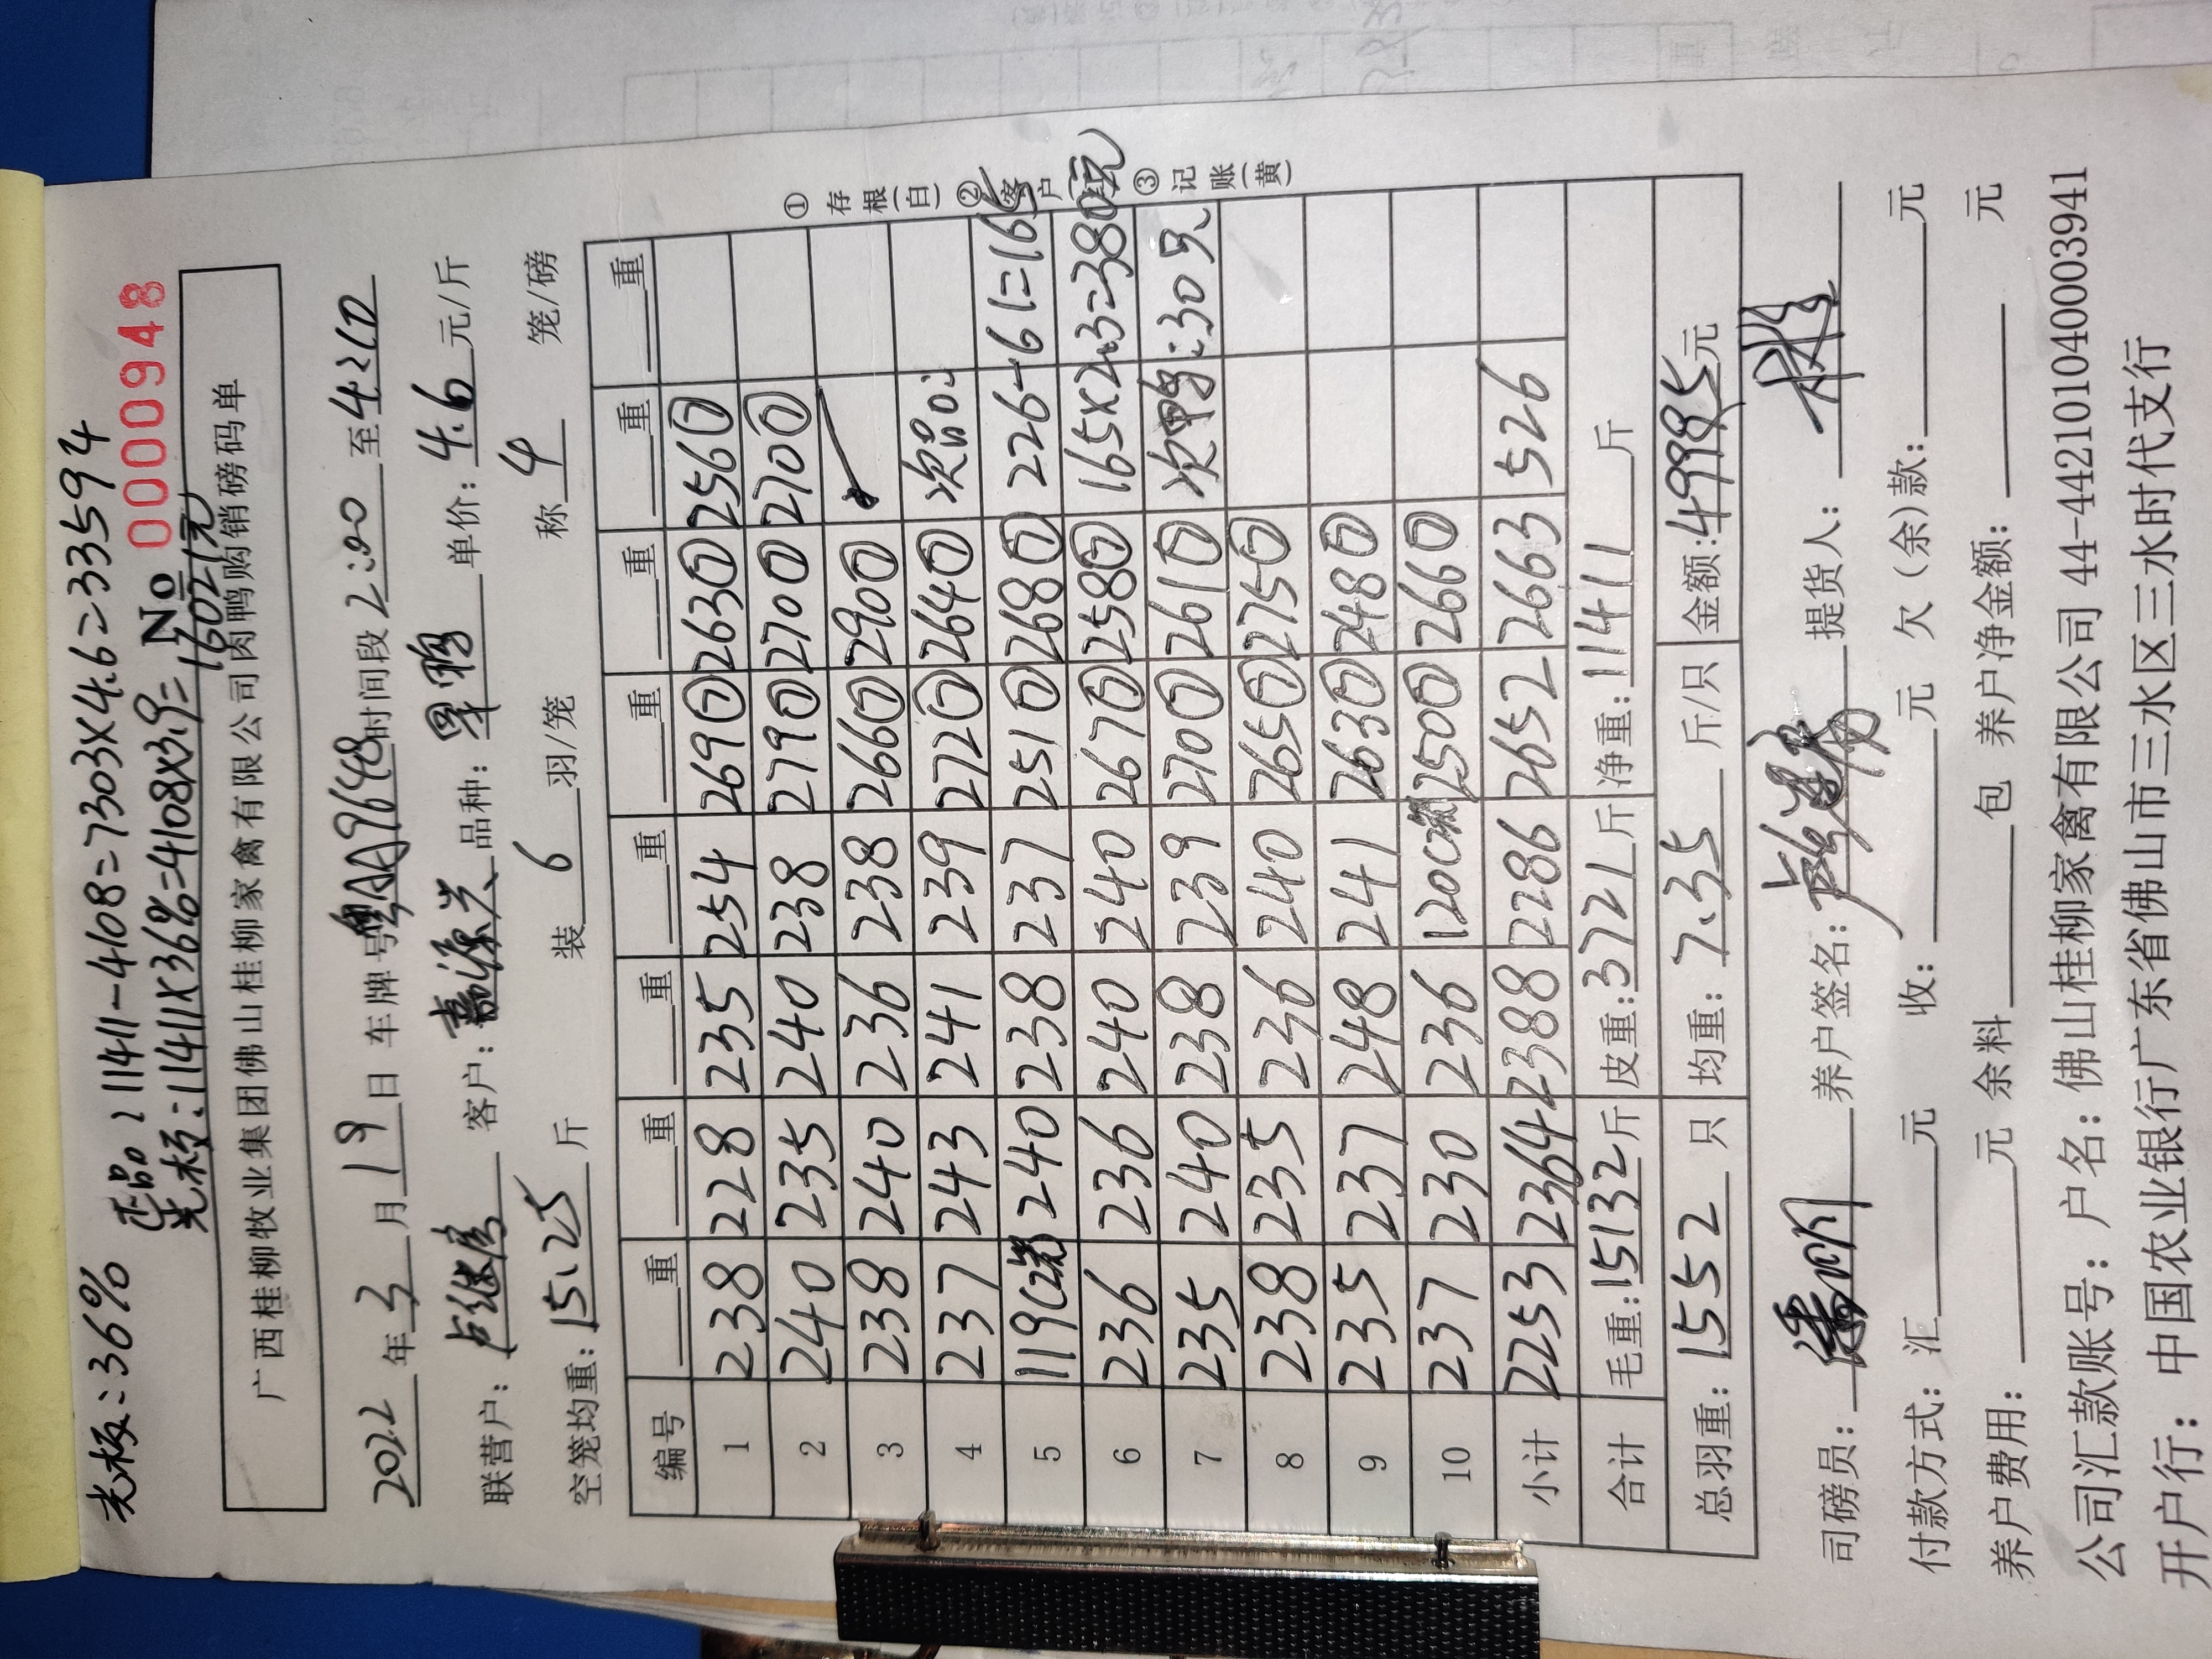 光板:36% 正品:11411-4108=7303×4.6=33594
光板:11411×36%=4108×3.9=16021元
No 0000948
广西桂柳牧业集团佛山桂柳家禽有限公司肉鸭购销磅码单
2022年3月19日 车牌号粤AA9648时间段2:00至4:20
联营户:卢继 客户:嘉源兴 品种: 单价:4.6元/斤
空笼均重:15.25斤 装6羽/笼 称4笼/磅
编号 重 重 重 重 重 重 重 重
1 238 228 235 254 2690 2630 2560
2 240 235 240 238 2790 2700 2700
3 238 240 236 238 2660 2900
4 237 243 241 239 2720 2640
5 119(2笼) 240 238 237 2510 2680 226-61=165
6 236 236 240 240 2670 2580 165×2.3=380元
7 235 240 238 239 2700 2610 次鸭:30只
8 238 235 236 240 2650 2750
9 235 237 248 241 2630 2480
10 237 230 236 120(2笼) 2500 2660
小计 2253 2364 2388 2286 2652 2663 526
合计 毛重:15132斤 皮重:3721斤 净重:11411斤
总羽重:1552只 均重:7.35斤/只 金额:49995元
①存根(白)②客户(红)③记账(黄)
司磅员: 养户签名: 提货人:
付款方式:汇元 收:元 欠(余)款:元
养户费用:元 余料包 养户净金额:元
公司汇款账号:户名:佛山桂柳家禽有限公司 44-442101040003941
开户行:中国农业银行广东省佛山市三水区三水时代支行